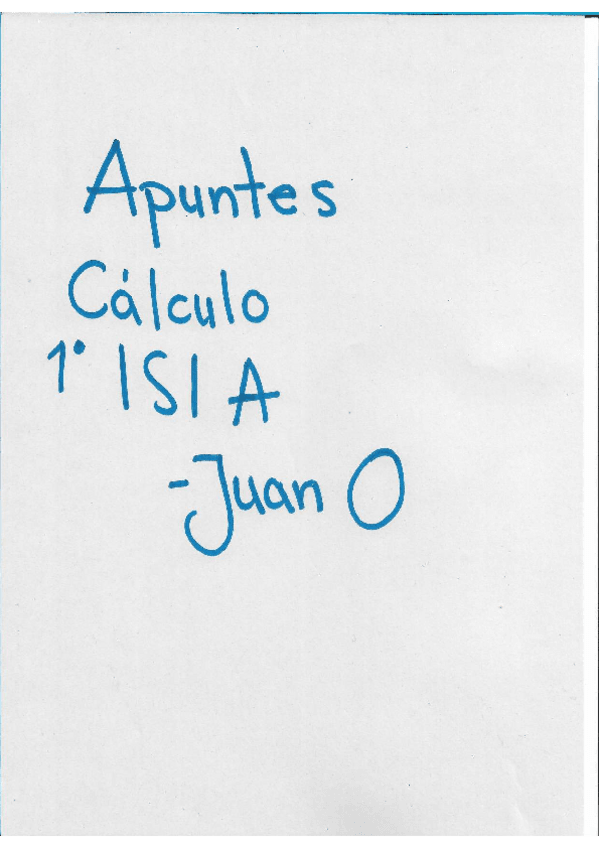 Apuntes
Cálculo
1° ISI A
-Juan O